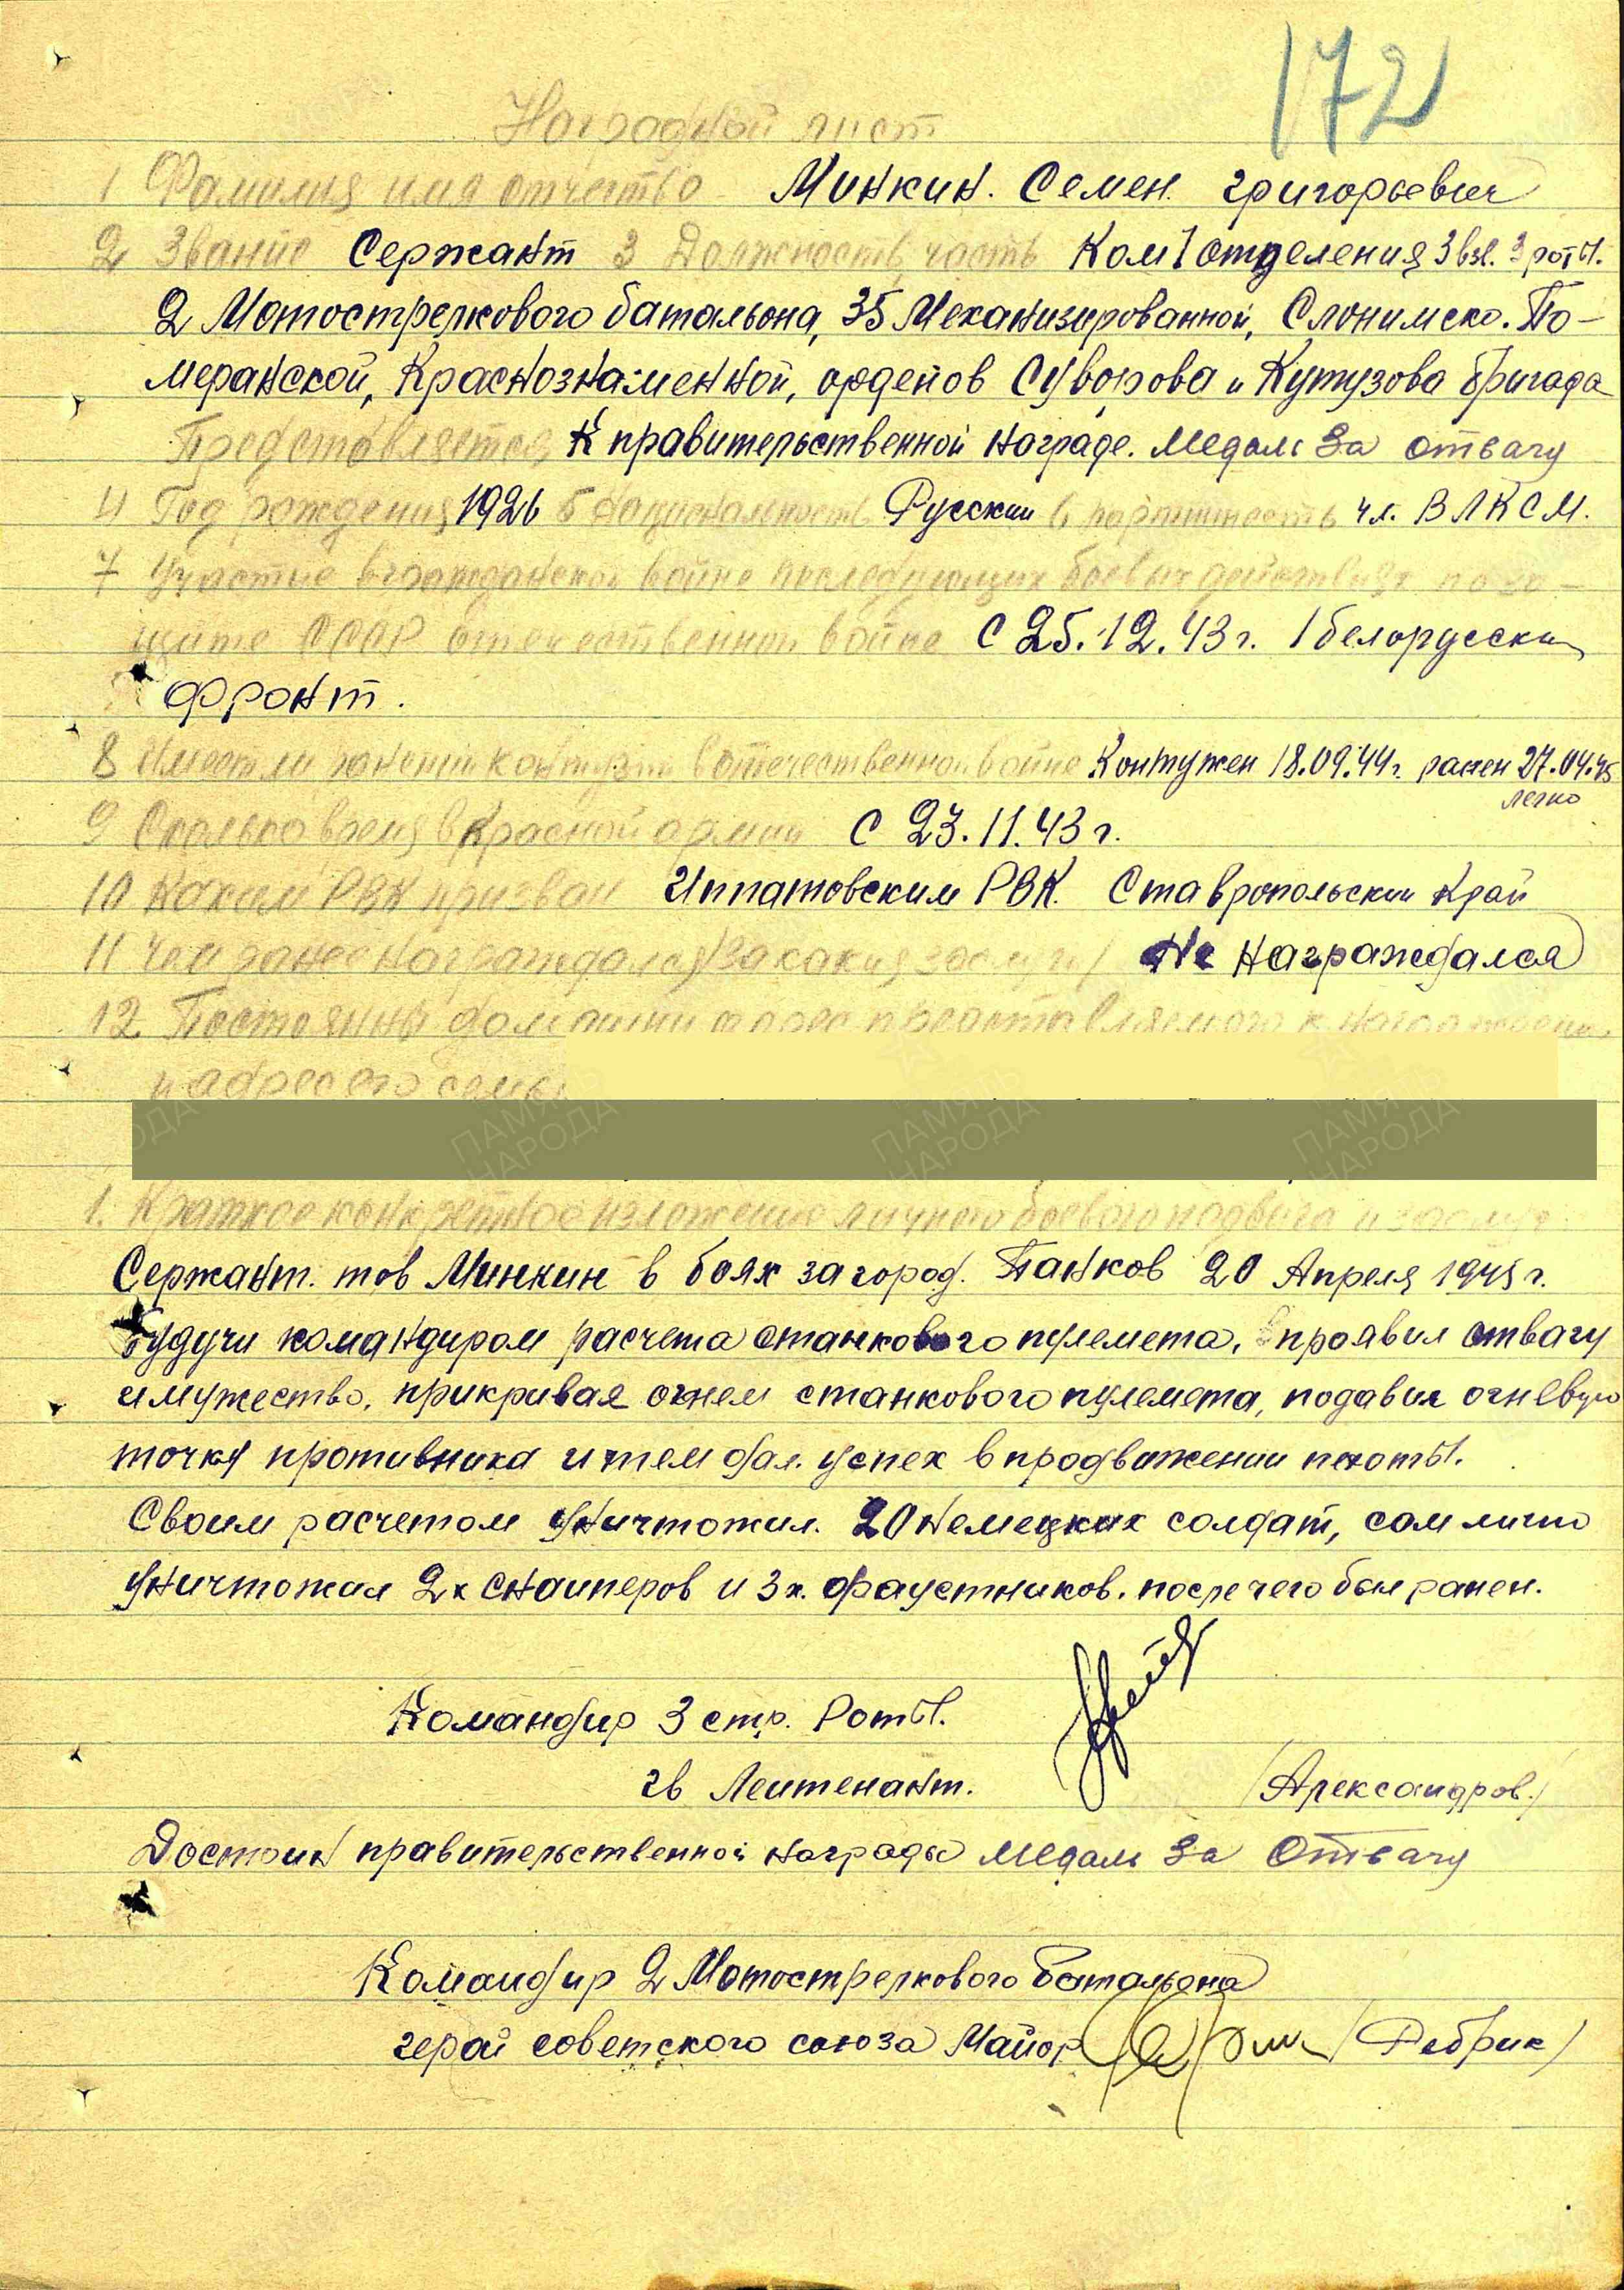 172
Наградной лист
1 Фамилия имя отчество Минкин. Семен. Григорьевич
2 Звание Сержант 3 Должность, часть Ком 1 отделения 3 взв. 3 роты.
2 Мотострелкового батальона, 35 Механизированной, Слонимско. По-
меранской, Краснознаменной, орденов Суворова и Кутузова бригада
Представляется К правительственной награде. Медаль За отвагу
4 Год рождения 1926 5 национальность Русский 6 партийность чл. ВЛКСМ.
7 Участие в гражданской войне последующих боевых действиях по за-
щите СССР отечественной войне С 25.12.43 г. 1 белорусский
фронт.
8 Имеет ли ранения контузии в отечественной войне Контужен 18.09.44 г. ранен 27.04.45
легко
9 Сколько время в Красной армии С 23.11.43 г.
10 Каким РВК призван Ипатовским РВК. Ставропольский край
11 Чем ранее награждался (за какия заслуги) Не награждался
12 Постоянный домашний адрес представляемого к награждению
и адрес его семьи
ПАМЯТЬ НАРОДА
1. Краткое конкретное изложение личного боевого подвига и заслуг
Сержант. тов Минкин в боях за город. Панков 20 Апреля 1945 г.
Будучи командиром расчета станкового пулемета, проявил отвагу
и мужество, прикривая огнем станкового пулемета, подавил огневую
точку противника и тем дал. успех в продвижении пехоты.
Своим расчетом уничтожил. 20 немецких солдат, сам лично
уничтожил 2х снаиперов и 3х. фаустников. после чего был ранен.
Командир 3 стр. Роты.
гв Леитенант. /Александров./
Достоин правительственной награды медаль За Отвагу
Командир 2 Мотострелкового Батальона
герой советского союза Майор /Дебрик/